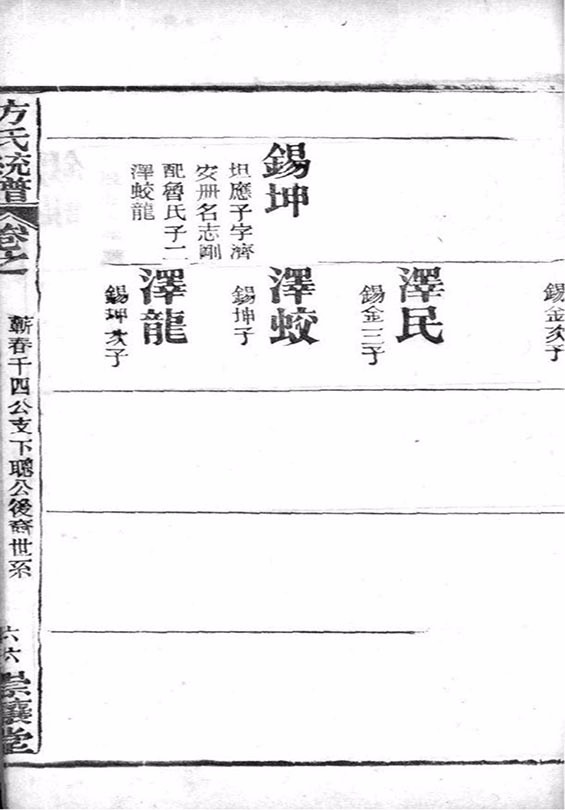 錫金次子
澤民
錫金三子
錫坤
坦應子字濟
安册名志剛
配魯氏子二
澤蛟龍
澤蛟
錫坤子
澤龍
錫坤次子
方氏統譜
卷之一
蘄春千四公支下聰公後裔世系
六六
崇讓堂